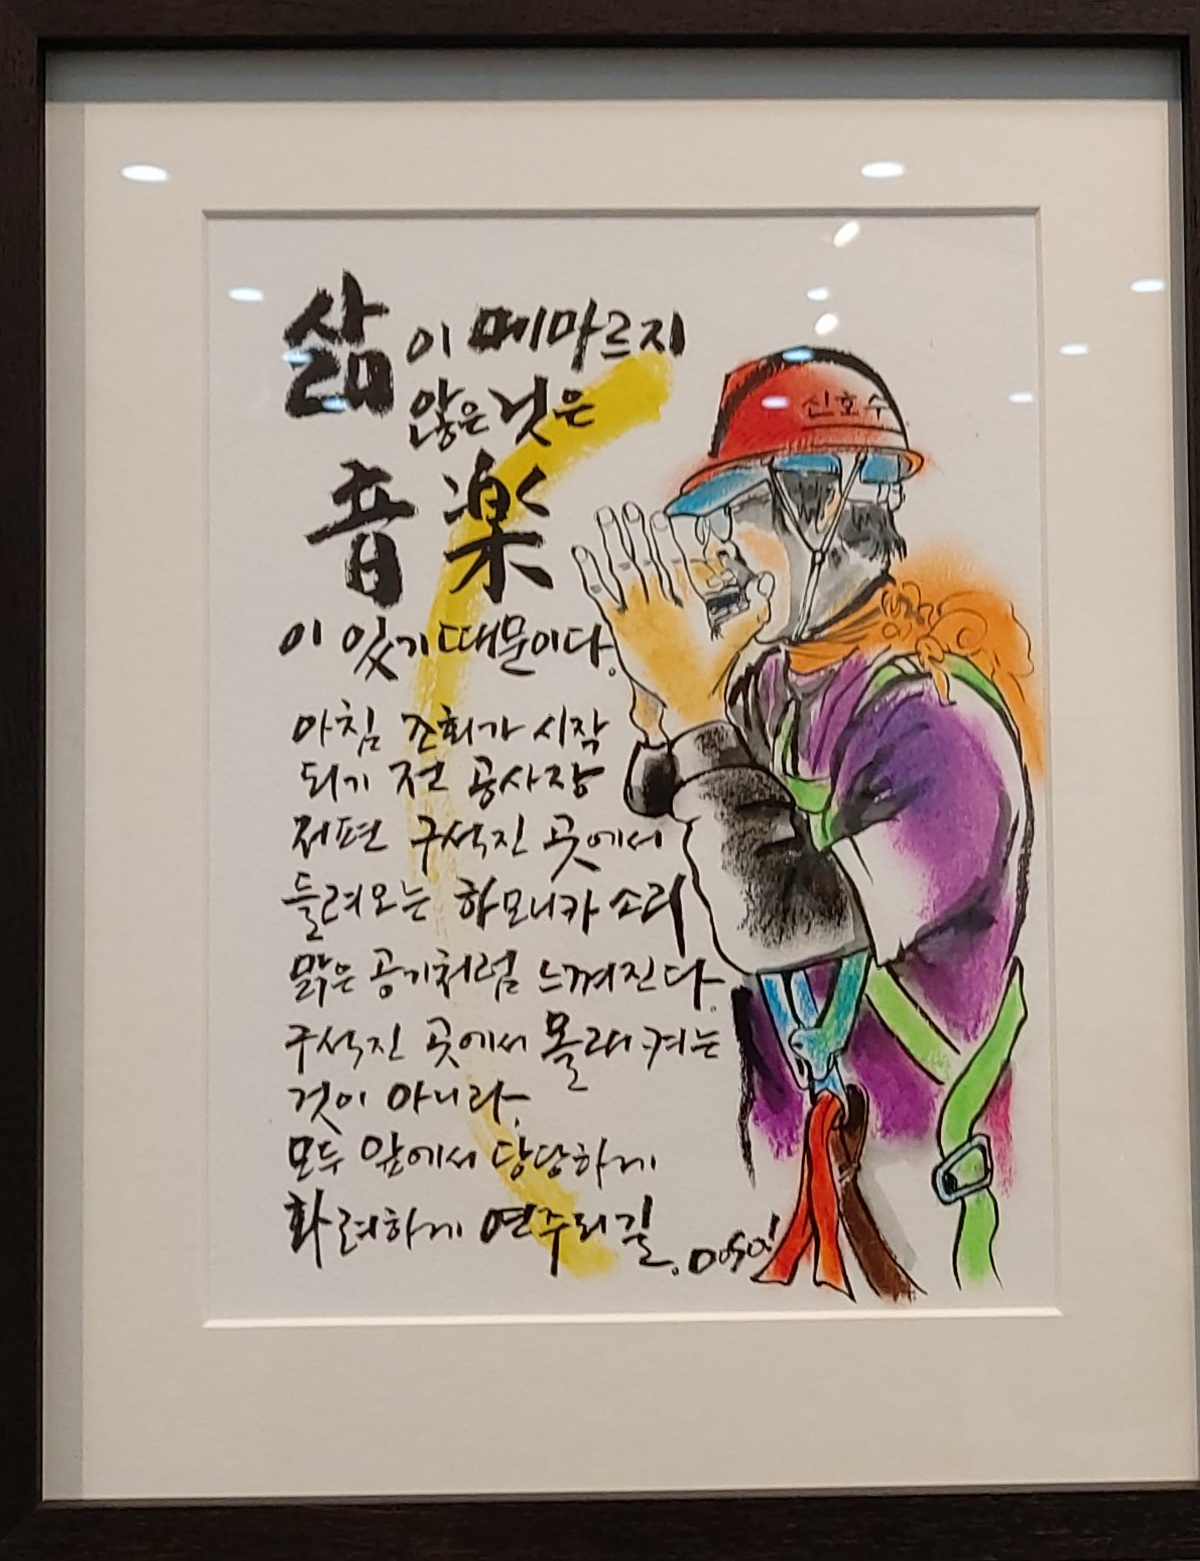 삶이 메마르지
않은 것은
音楽
이 있기 때문이다.
아침 조회가 시작
되기 전 공사장
저편 구석진 곳에서
들려오는 하모니카 소리
맑은 공기처럼 느껴진다.
구석진 곳에서 몰래 켜는
것이 아니라,
모두 앞에서 당당하게
화려하게 연주되길.
신호수